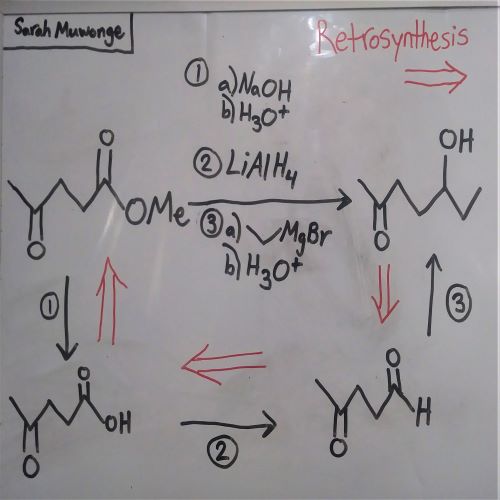 Sarah Muwonge
Retrosynthesis
① a) NaOH
b) H₃O⁺
② LiAlH₄
③ a) MgBr
b) H₃O⁺
O
OMe
O
OH
O
①
③
O
OH
O
②
O
H
O